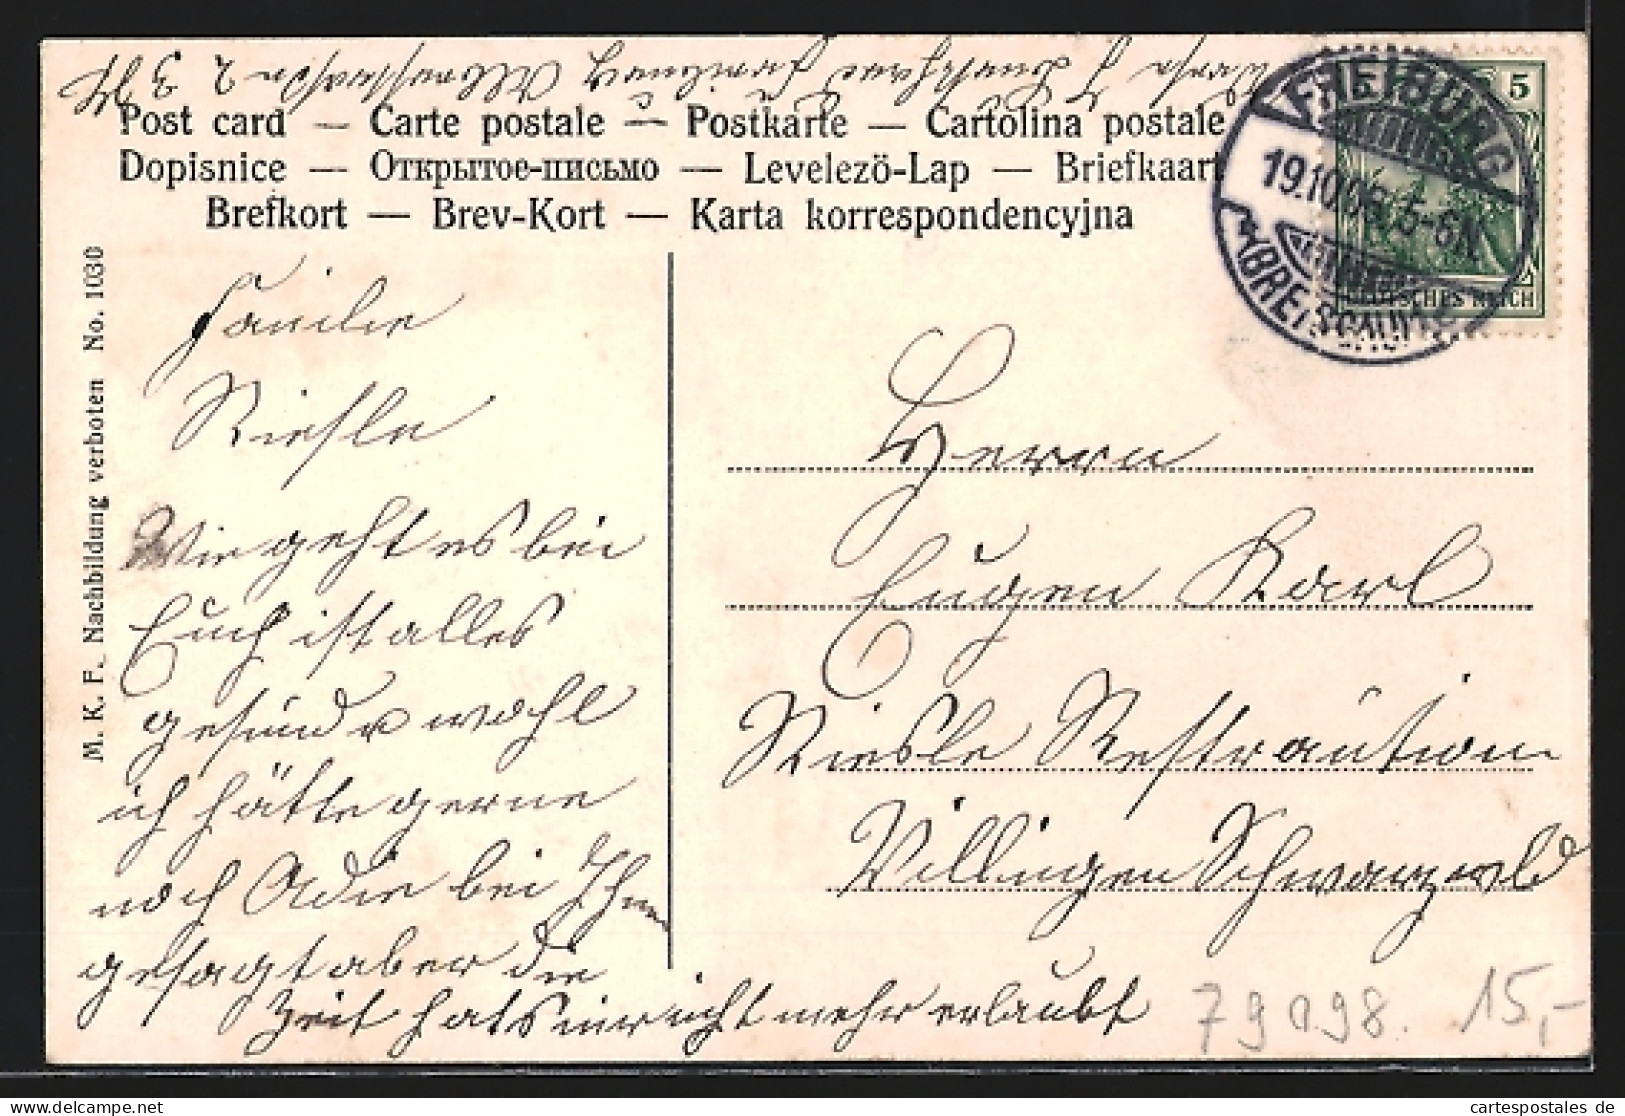 Post card — Carte postale — Postkarte — Cartolina postale
Dopisnice — Открытое-письмо — Levelezö-Lap — Briefkaart
Brefkort — Brev-Kort — Karta korrespondencyjna
M. K. F. Nachbildung verboten No. 1030
FREIBURG
19.10.06. 5-6N
(BREISGAU)
5
DEUTSCHES REICH
Familie
Riesle
Wie geht es bei
Euch ist alles
gesund u wohl
ich hätte gerne
noch Adie bei Ihnen
gesagt aber die
Zeit hats mir nicht mehr erlaubt
Herrn
Eugen Karl
Riesle Restraution
Villingen Schwarzwald
79098. 15,-
cartespostales de